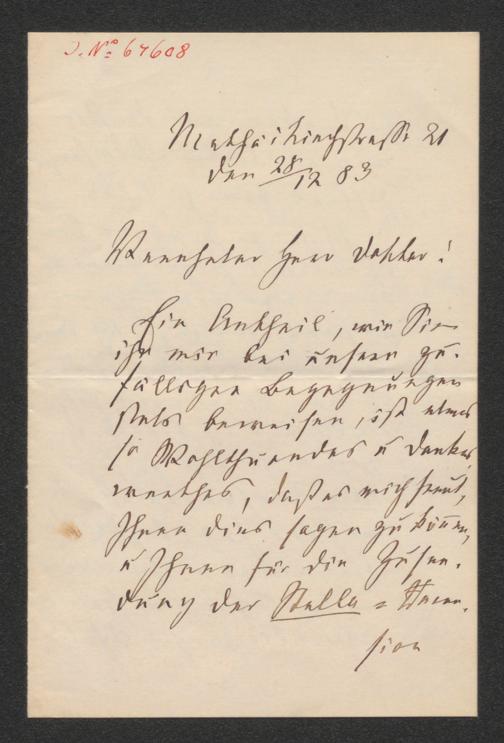 J. № 67608
Mathäikirchstrasse 21
den 28/12 83
Verehrter Herr Doktor!
Ein Antheil, wie Sie
ihn mir bei unsern zu-
fälligen Begegnungen
stets beweisen, ist etwas
so Wohlthuendes u dankens
werthes, daß es mich freut,
Ihnen dies sagen zu können,
u Ihnen für die Zusen-
dung der Stella = Recen-
sion